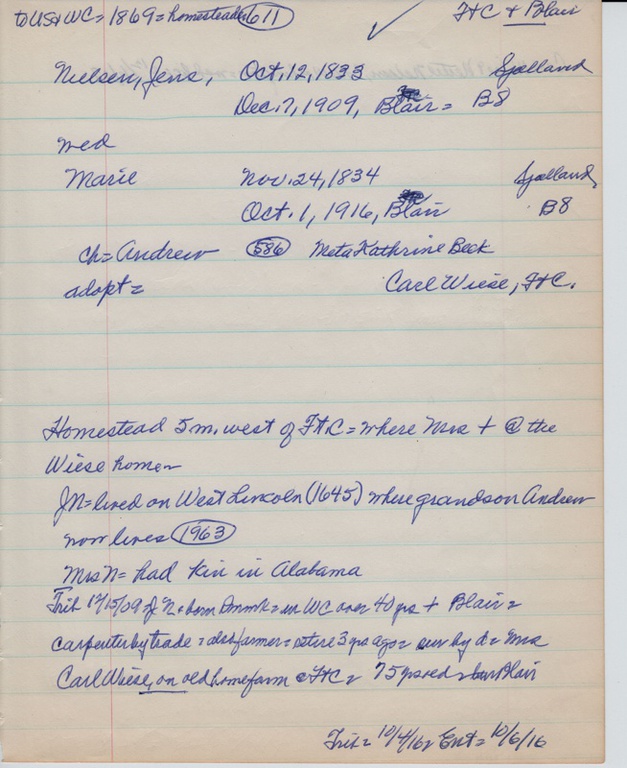 to US + WC = 1869 = homestead 611 FtC + Blair
Nielsen, Jens, Oct. 12, 1833 Sjælland
Dec. 7, 1909, Blair = B8
wed
Marie Nov. 24, 1834 Sjælland
Oct. 1, 1916, Blair B8
ch = Andrew 586 Meta Kathrine Beck
adopt = Carl Wiese, FtC.
Homestead 5 m. west of Ft.C = where Mrs + @ the
Wiese home =
JN = lived on West Lincoln (1645) where grandson Andrew
now lives 1963
Mrs N = had kin in Alabama
Trib 12/15/09 JN = born Dnmk = in WC over 40 yrs + Blair =
carpenter by trade = also farmer = retire 3 yrs ago = surv by d = Mrs
Carl Wiese, on old home farm @ FtC = 75 yrs old = bur Blair
Trib = 10/4/16 = Ent = 10/6/16